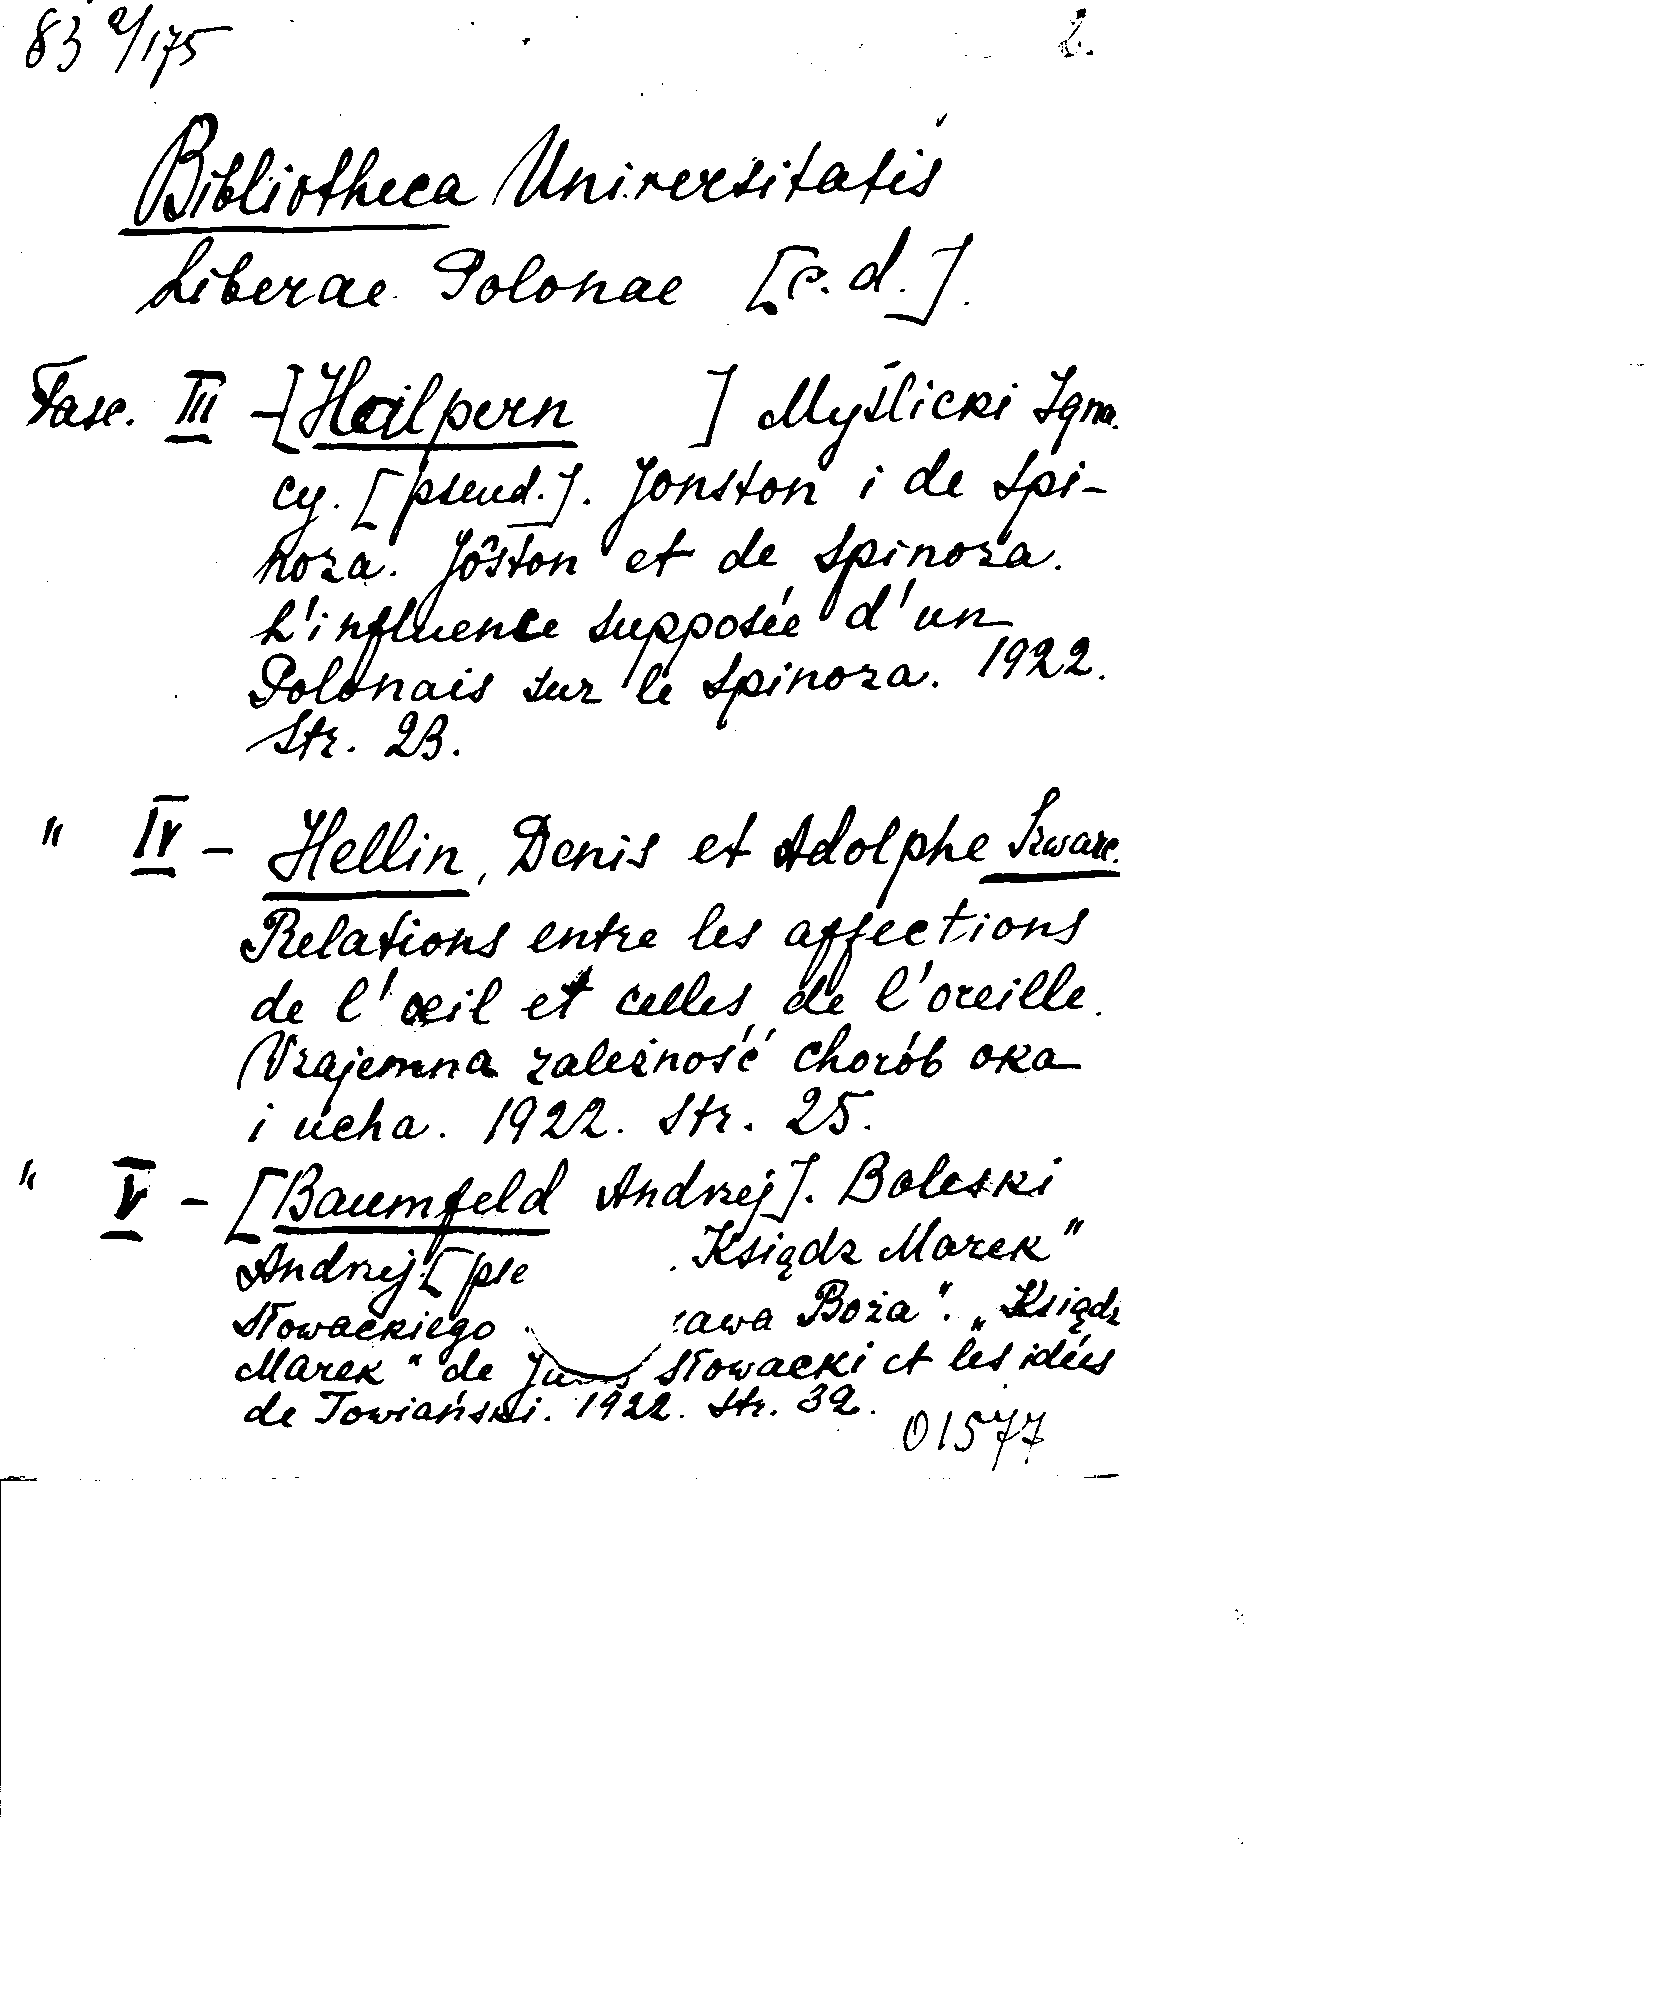 83 a/175 2.
Bibliotheca Universitatis
Liberae Polonae [c.d.].
Fasc. III -[Heilpern ] Myślicki Igna.
cy. [pseud.]. Jonston i de Spi-
noza. Jôston et de Spinoza.
L'influence supposée d'un
Polonais sur le Spinoza. 1922.
Str. 23.
" IV - Hellin, Denis et Adolphe Szwarc.
Relations entre les affections
de l'œil et celles de l'oreille.
Wzajemna zależność chorób oka
i ucha. 1922. Str. 25.
" V - [Baumfeld Andrzej]. Boleski
Andrzej [pse . Ksiądz Marek"
Słowackiego awa Boża". „Ksiądz
Marek" de Słowacki et les idées
de Towiański. 1922. Str. 32.
01577